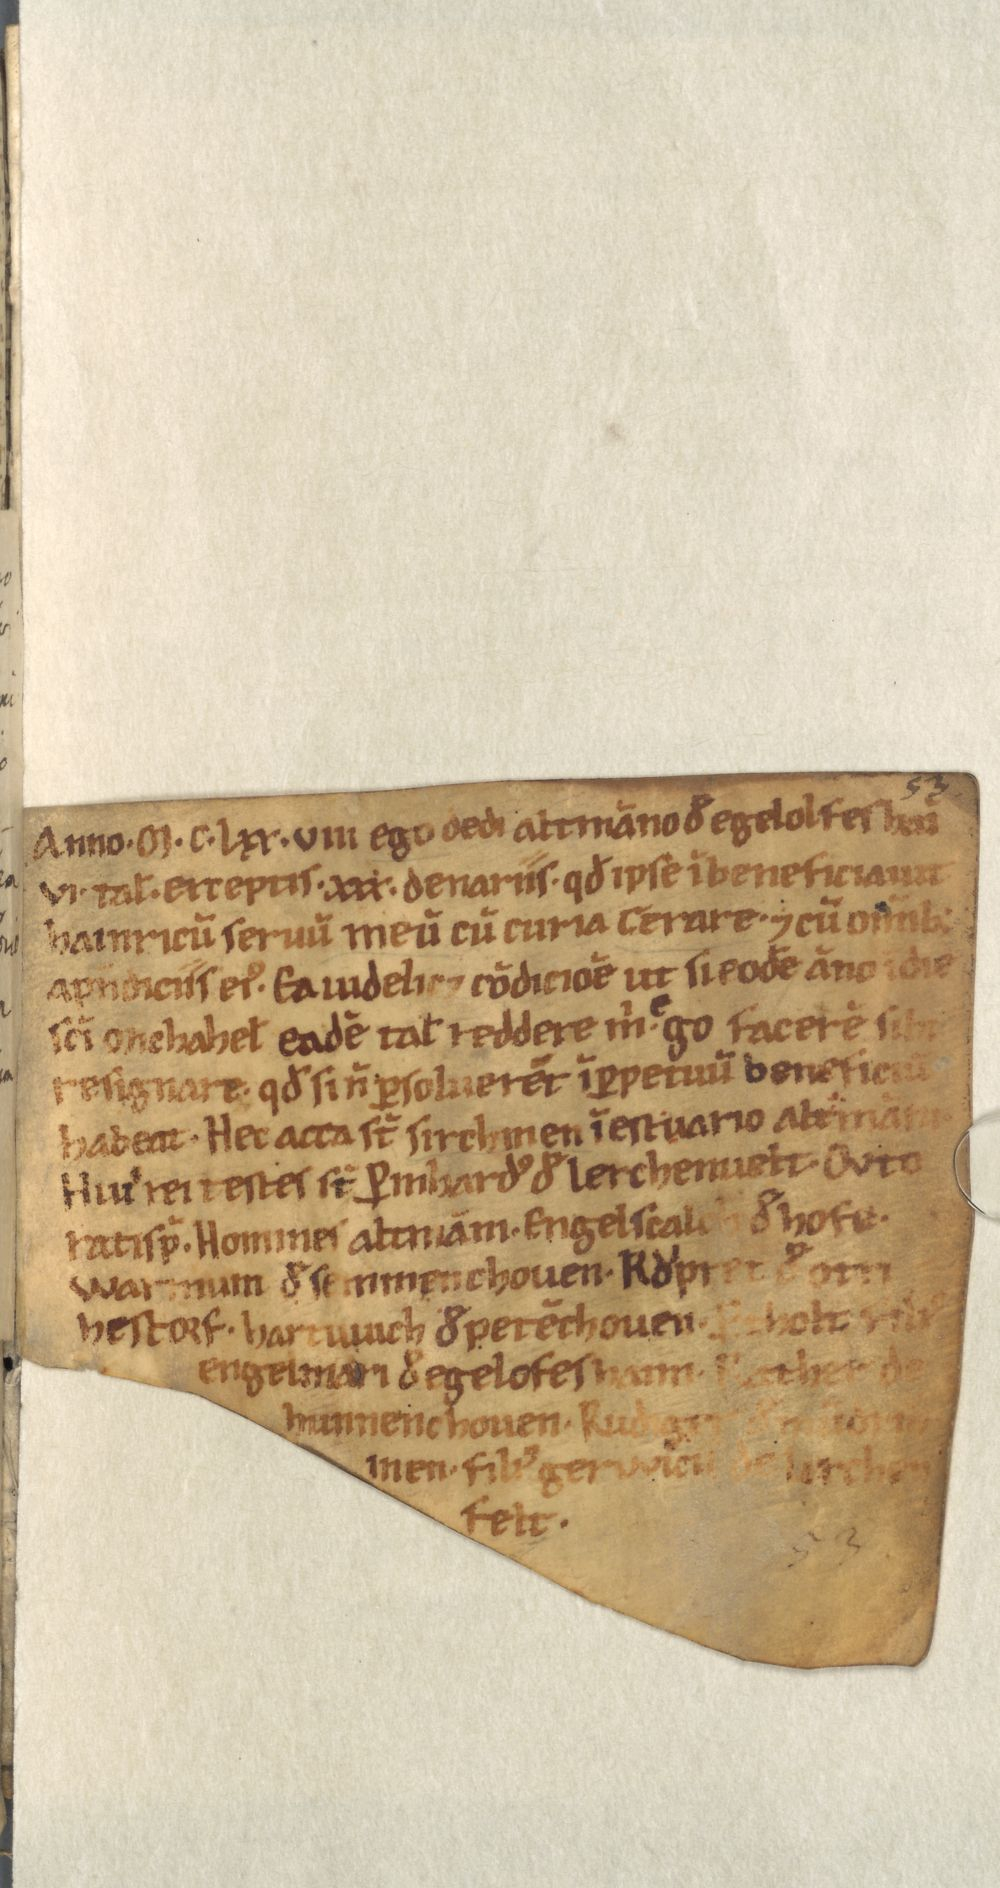 53
Anno· M· C· lxx· viii ego dedi altmāno đ egelolfeshei͞m
vi· tal̄· exceptis· xxx· denariis· qđ ipse ībeneficiauit
hainricū seruū meū cū curia Cerare· ⁊ cū om̄ib;
apndiciis eꝰ· Ea uidelic⁊ cōdicioē ut si eodē āno ī die
sc̄i michahel̄ eadē tal̄ reddere m̄· ego facerē sibi
resignare· qđ si n̄ ꝑsoluerēt īꝑpetuū beneficiū
habeat· Hec acta st̄ sirchingen ī estuario altmāni·
Huiꝰ rei testes st̄ ꝑinhardꝰ đ lerchenuelt· Ovto
ratisp̄· Homines altmām· Engelscalch đ hofe·
Warmunt đ semmenchouen· Rđpret đ otti
hestorf· hartwich đ petēchouen· holt filiꝰ
engelmari đ egelofeshaim· de
hunnenchouen· Rudiger
men· filiꝰ gerwici de lerchen
felt·
53